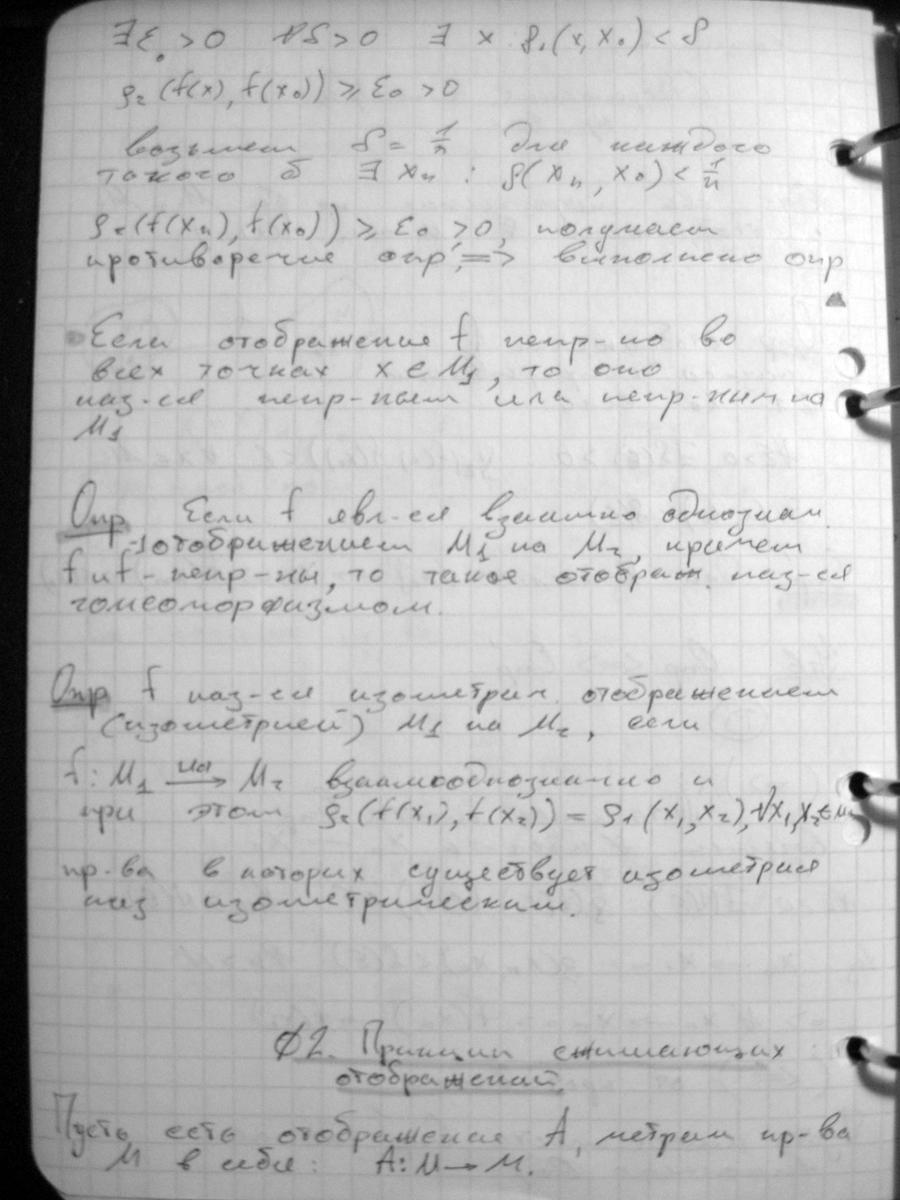 ∃ε₀ > 0 ∀δ > 0 ∃ x ρ₁(x, x₀) < δ
ρ₂(f(x), f(x₀)) ≥ ε₀ > 0
возьмем δ = 1/n для каждого
такого δ ∃ xₙ : ρ(xₙ, x₀) < 1/n
ρ₂(f(xₙ), f(x₀)) ≥ ε₀ > 0, получаем
противоречие опр', => выполнено опр
Если отображение f непр-но во
всех точках x ∈ M₁, то оно
наз-ся непр-ным или непр-ным на
M₁
Опр Если f явл-ся взаимно однознач.
отображением M₁ на M₂, причем
f и f⁻¹ непр-ны, то такое отображ. наз-ся
гомеоморфизмом.
Опр f наз-ся изометрич. отображением
(изометрией) M₁ на M₂, если
f : M₁ на→ M₂ взаимооднозначно и
при этом ρ₂(f(x₁), f(x₂)) = ρ₁(x₁, x₂), ∀x₁, x₂ ∈ M₁
пр-ва в которых существует изометрия
наз изометрическим.
§2. Принцип сжимающих
отображений.
Пусть есть отображение A, метрич пр-ва
M в себя: A: M → M.